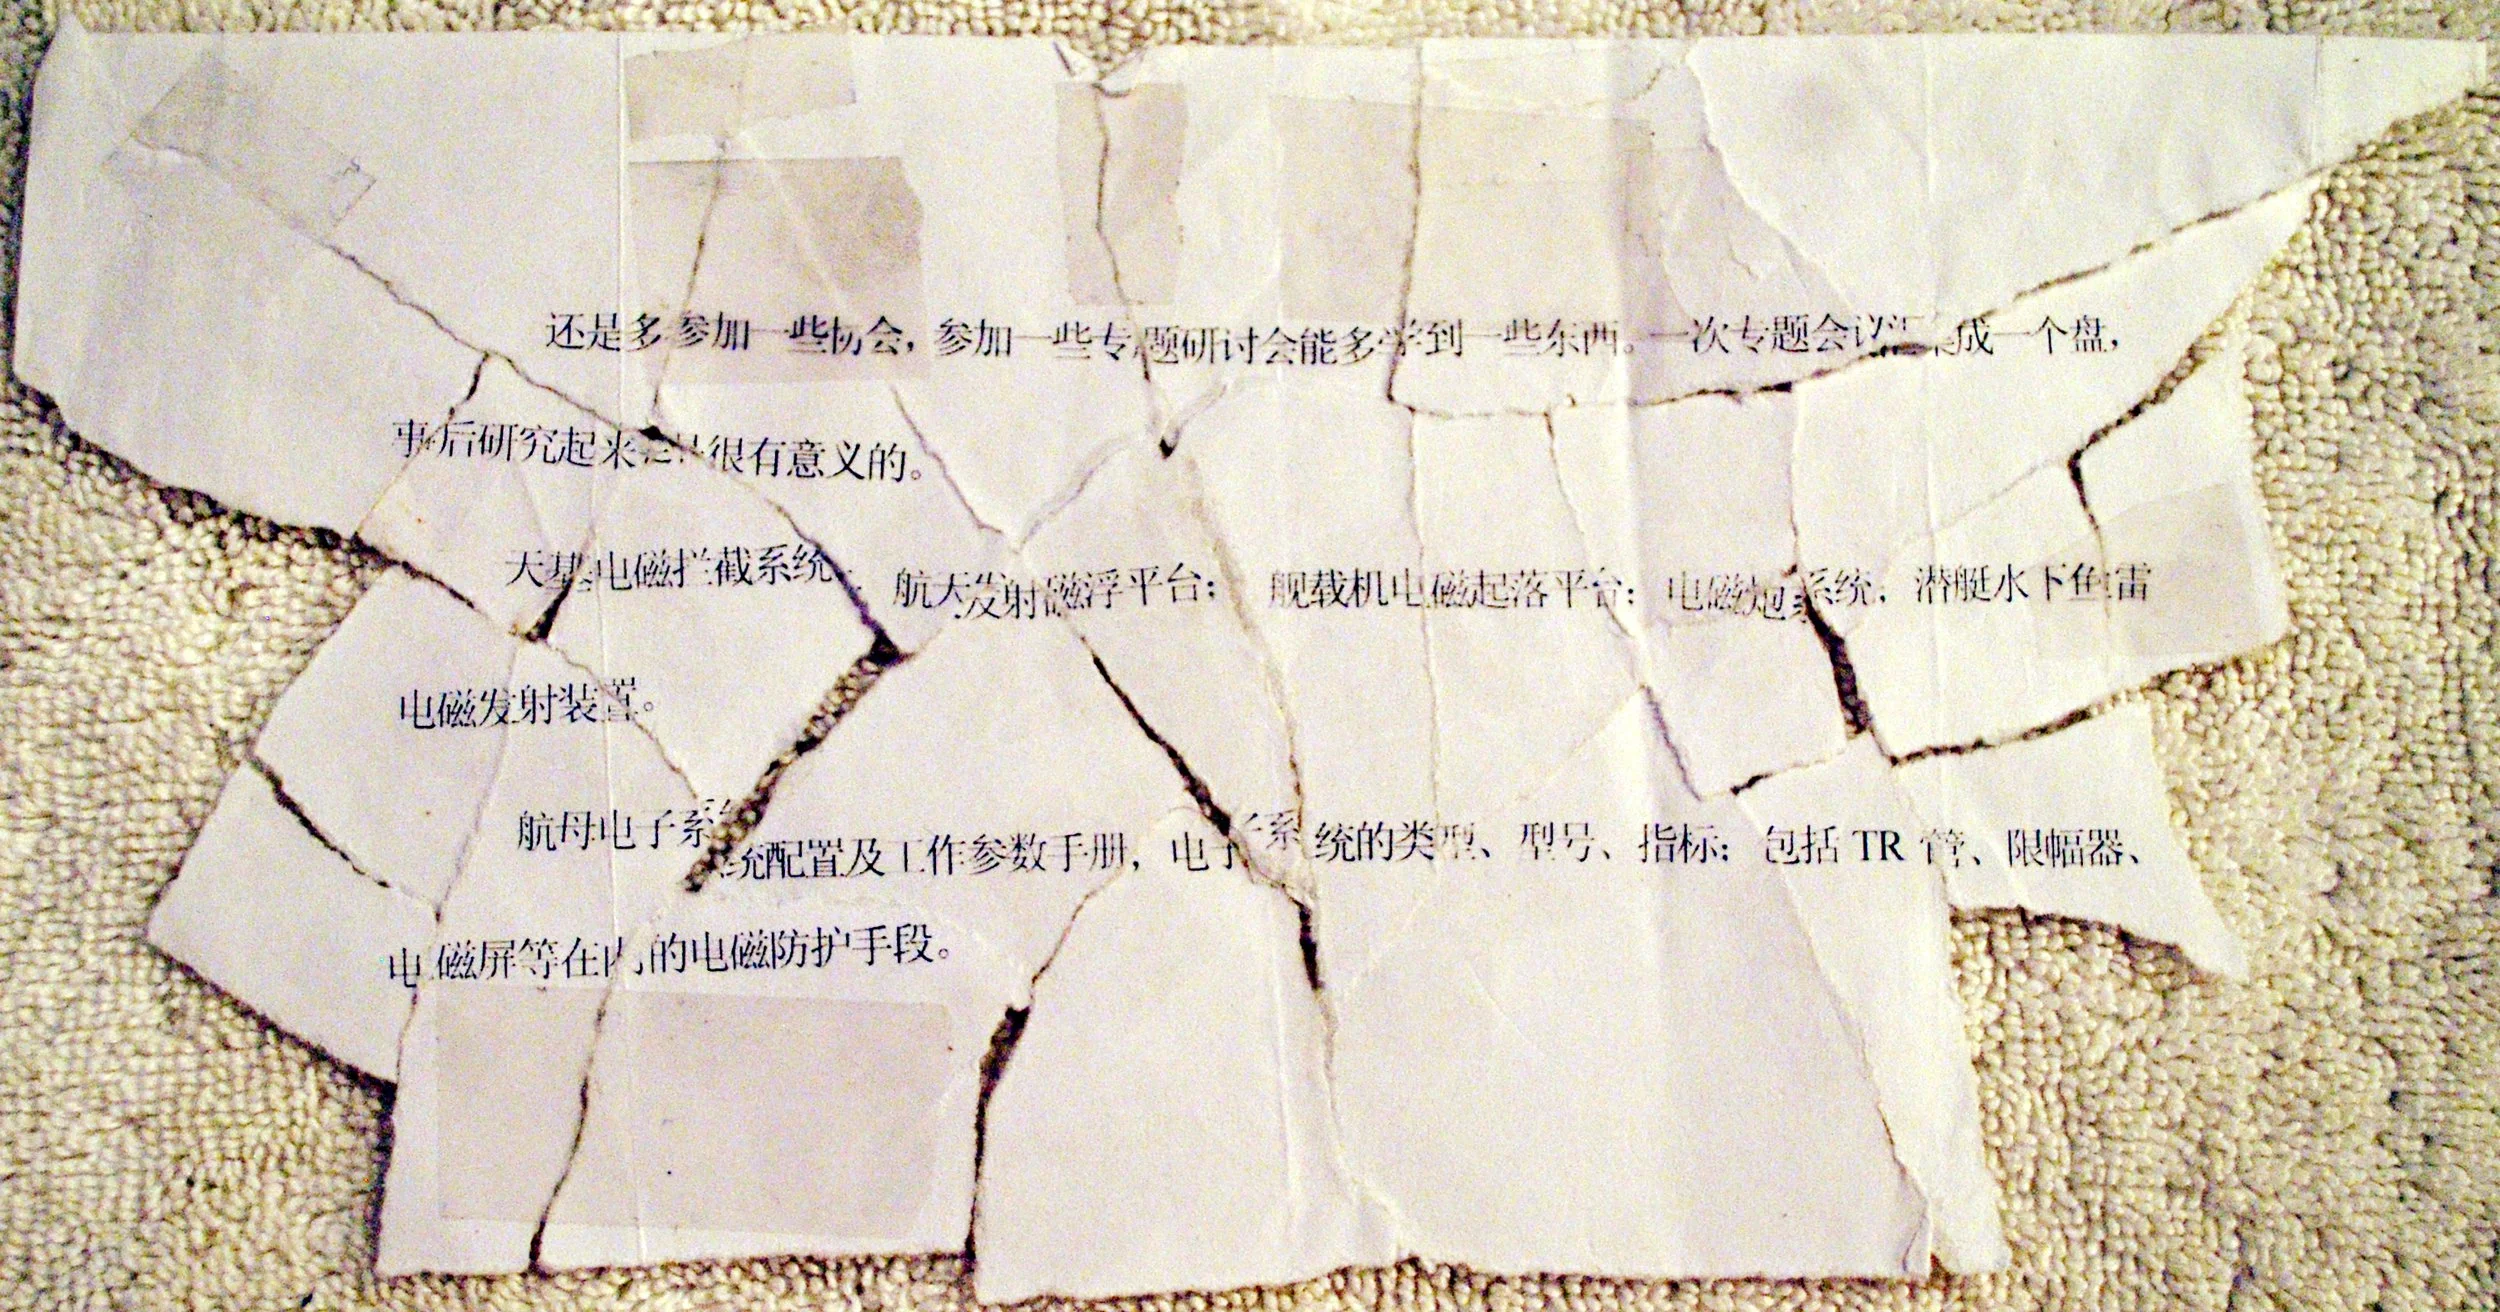 还是多参加一些协会，参加一些专题研讨会能多学到一些东西。一次专题会议 成一个盘，
事后研究起来 是很有意义的。
天基电磁拦截系统； 航天发射磁浮平台； 舰载机电磁起落平台； 电磁炮系统；潜艇水下鱼雷
电磁发射装置。
航母电子系统配置及工作参数手册，电子系统的类型、型号、指标；包括 TR 管、限幅器、
电磁屏等在内的电磁防护手段。